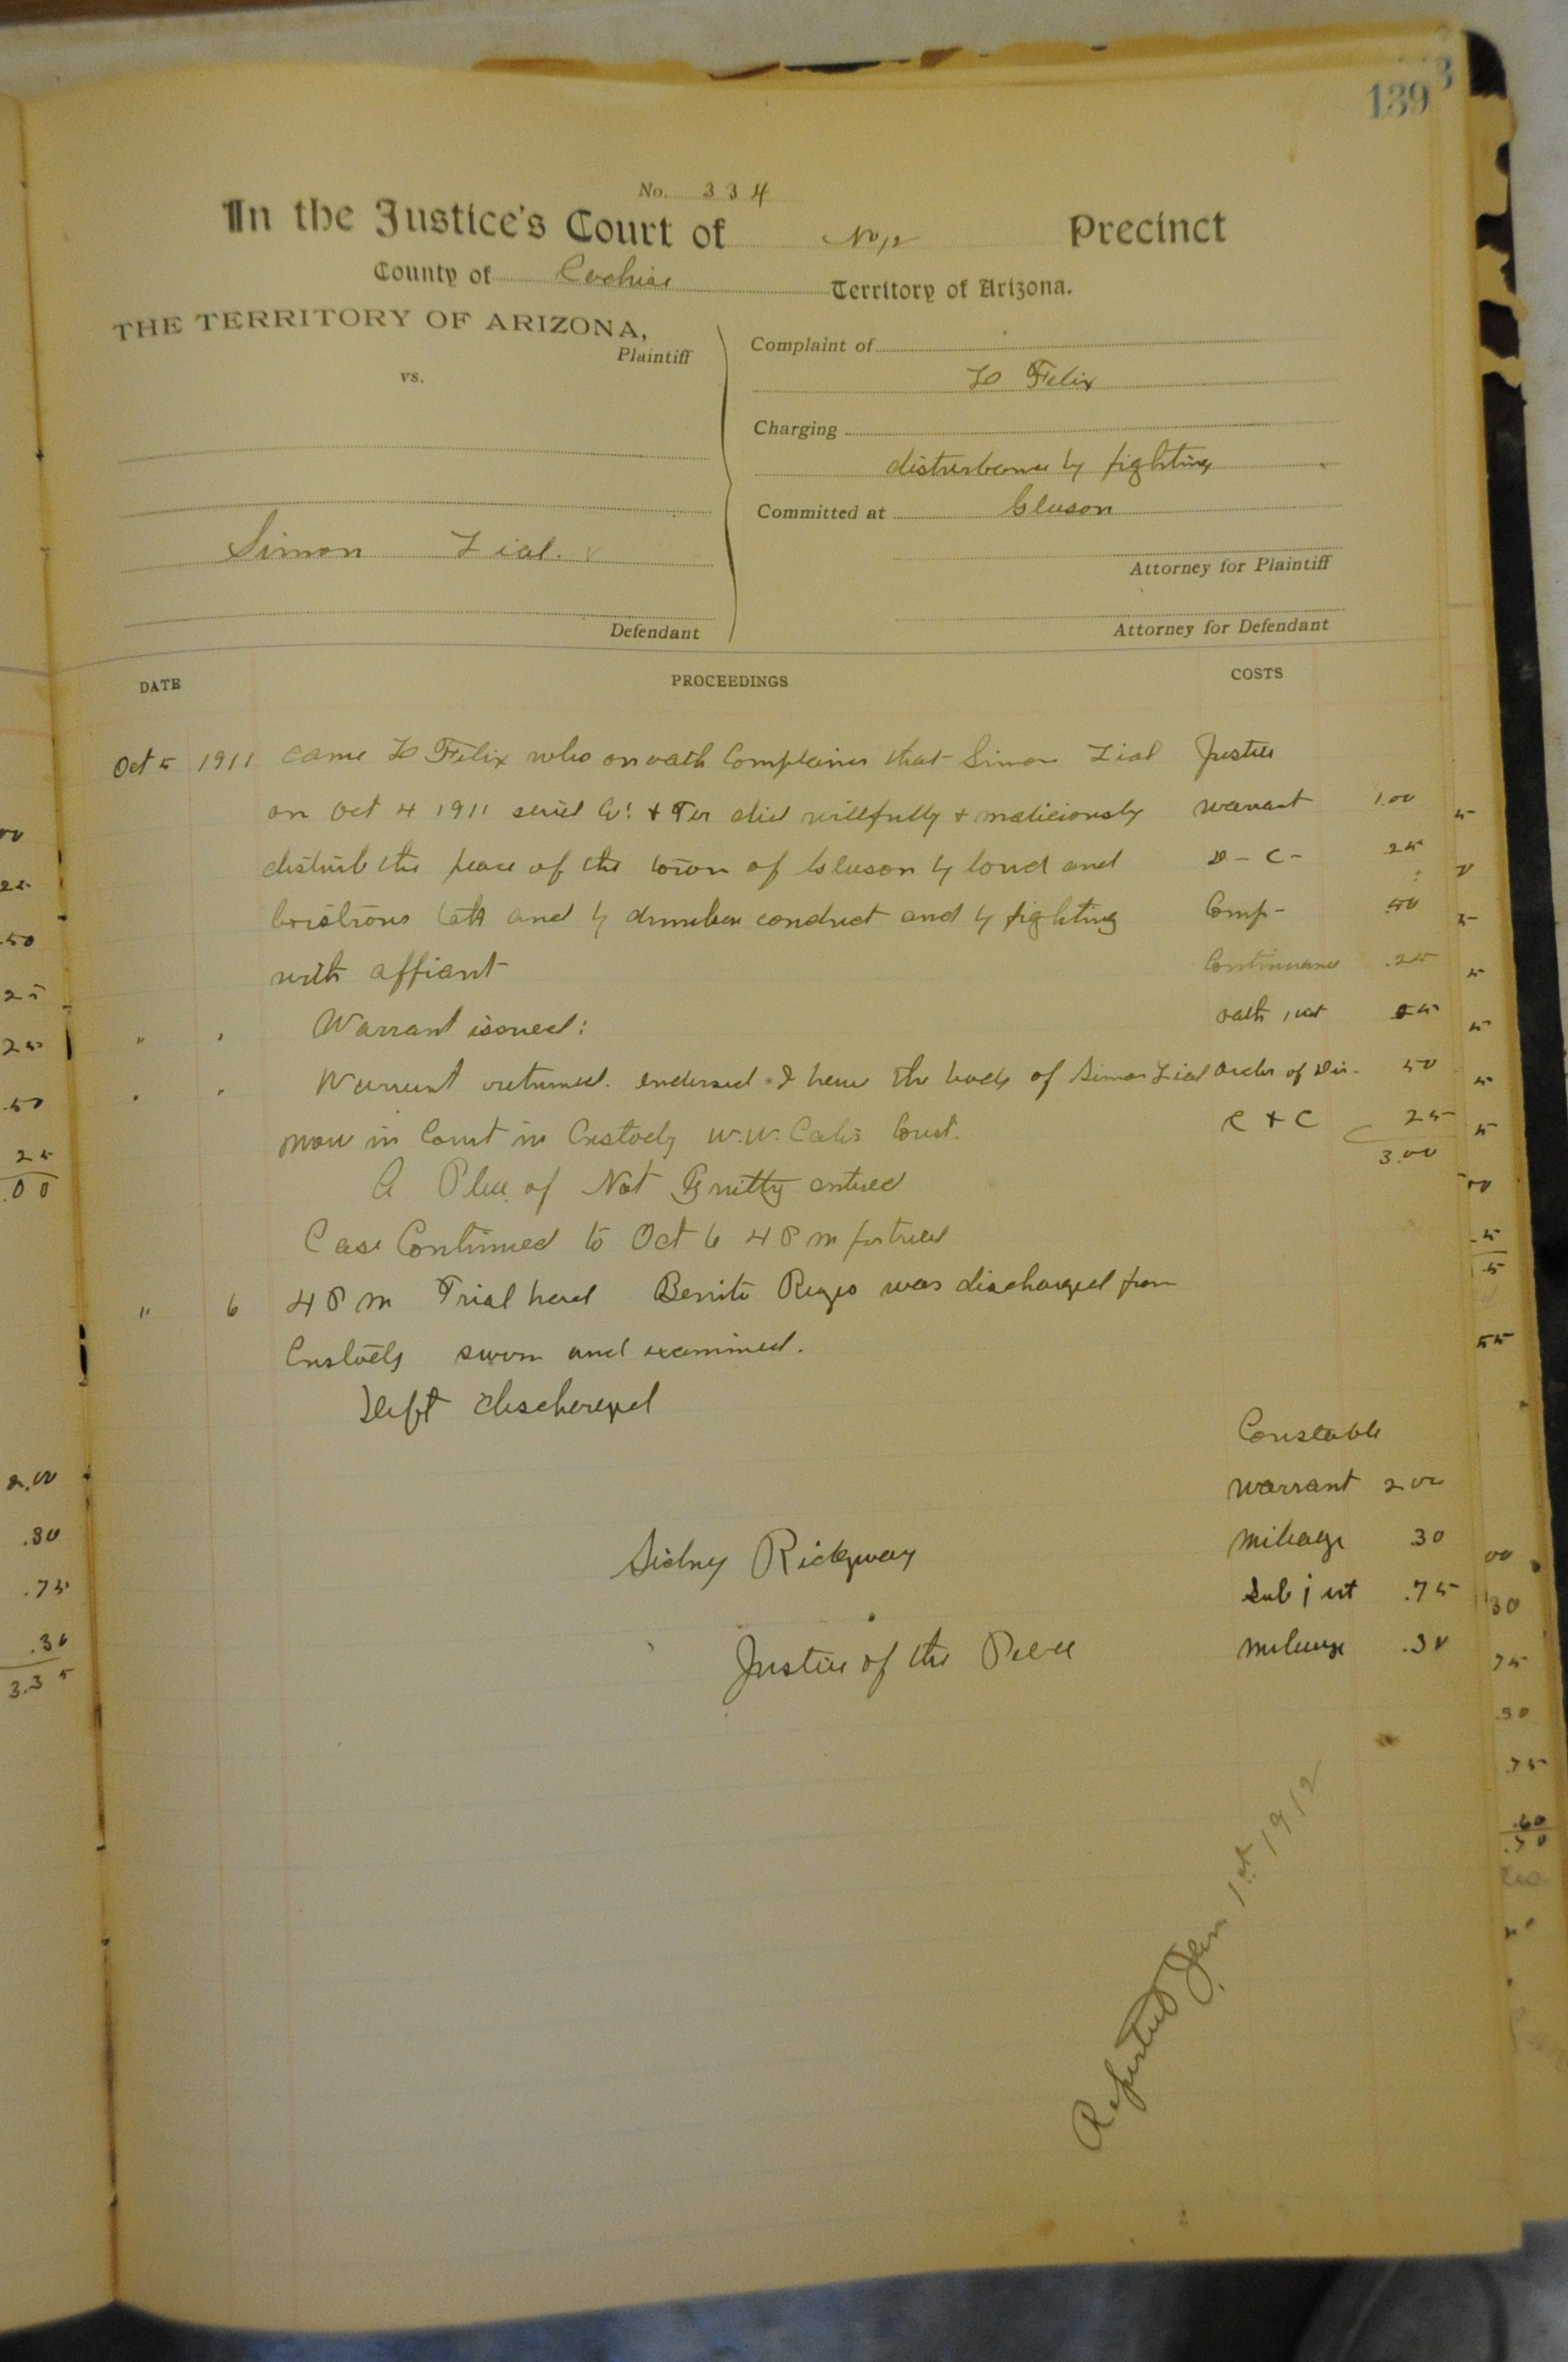 139
3
No. 334
In the Justice's Court of No 12 Precinct
County of Cochise Territory of Arizona.
THE TERRITORY OF ARIZONA,
Plaintiff
vs.
Simon Lial.
Defendant
Complaint of
Felix
Charging
disturbance by fighting
Committed at Gleeson
Attorney for Plaintiff
Attorney for Defendant
DATE PROCEEDINGS COSTS
Oct 5 1911 came Felix who on oath Complains that Simon Lial Justice
on Oct 4 1911 said Co & Ter did willfully & maliciously warrant 1.00
disturb the peace of the town of Gleeson by loud and D - C - .25
boistrous talk and by drunken conduct and by fighting Comp - .50
with affiant Continuance .25
" Warrant issued: oath 1 wit 25
" Warrant returned. endorsed I have the body of Simon Lial order of Dis. 50
now in Court in Custody W.W. Const. C + C 25
3.00
A Plea of Not Guilty entered
Case Continued to Oct 6 4 P m for trial
" 6 4 P m Trial had Benito Reyes was discharged from
Custody sworn and examined.
Deft discharged
Constable
warrant 2 00
Sidney Ridgway mileage 30
Sub 1 wit .75
Justice of the Peace mileage .30
Reported Jan 1st 1912
25
.50
25
25
.50
25
.00
2.00
.30
.75
.30
3.35
5
5
5
5
5
5
55
00
30
75
.30
.75
.60